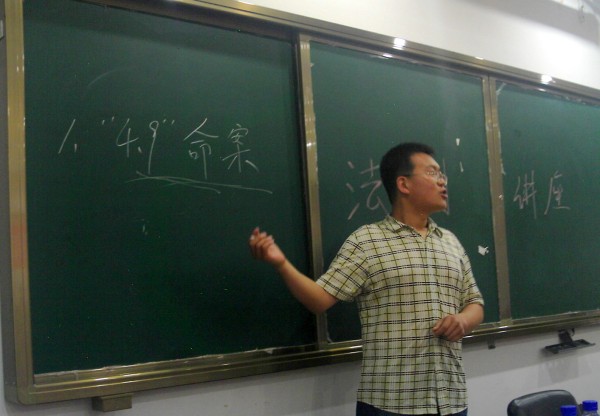 1. "4.9" 命案
法
讲座